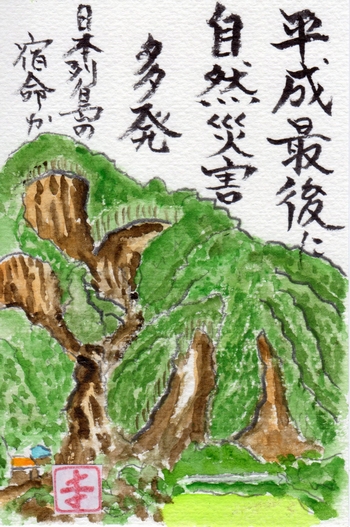 平成最後に
自然災害
多発
日本列島の
宿命か